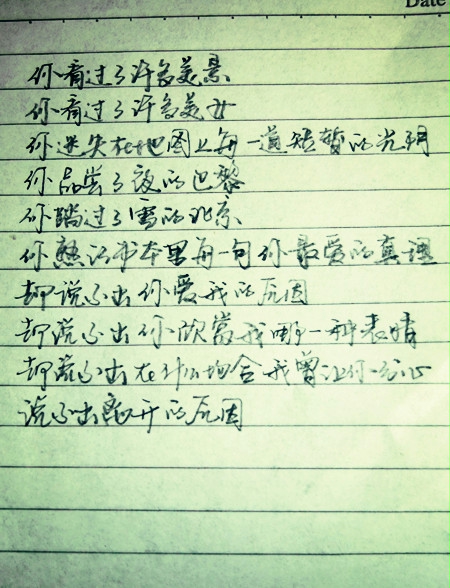 Date
你看过了许多美景
你看过了许多美女
你迷失在地图上每一道短暂的光阴
你品尝了夜的巴黎
你踏过了雪的北京
你熟记书本里每一句你最爱的真理
却说不出你爱我的原因
却说不出你欣赏我哪一种表情
却说不出在什么场合我曾让你分心
说不出离开的原因